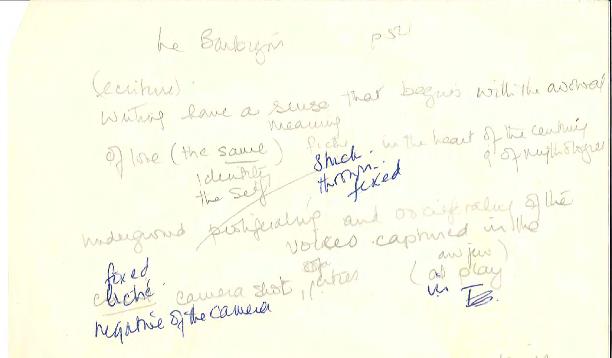 p52
(écriture).
Writing have a sense that begins with the avowal
meaning
of love (the same) fiche in the heart of the century
identity
the self
stuck.
thrown..
fixed
& of mythologies
underground proliferating and vociferating of the
voices captured in the
fixed
cliché camera shot,
(at play
in
negative of the camera